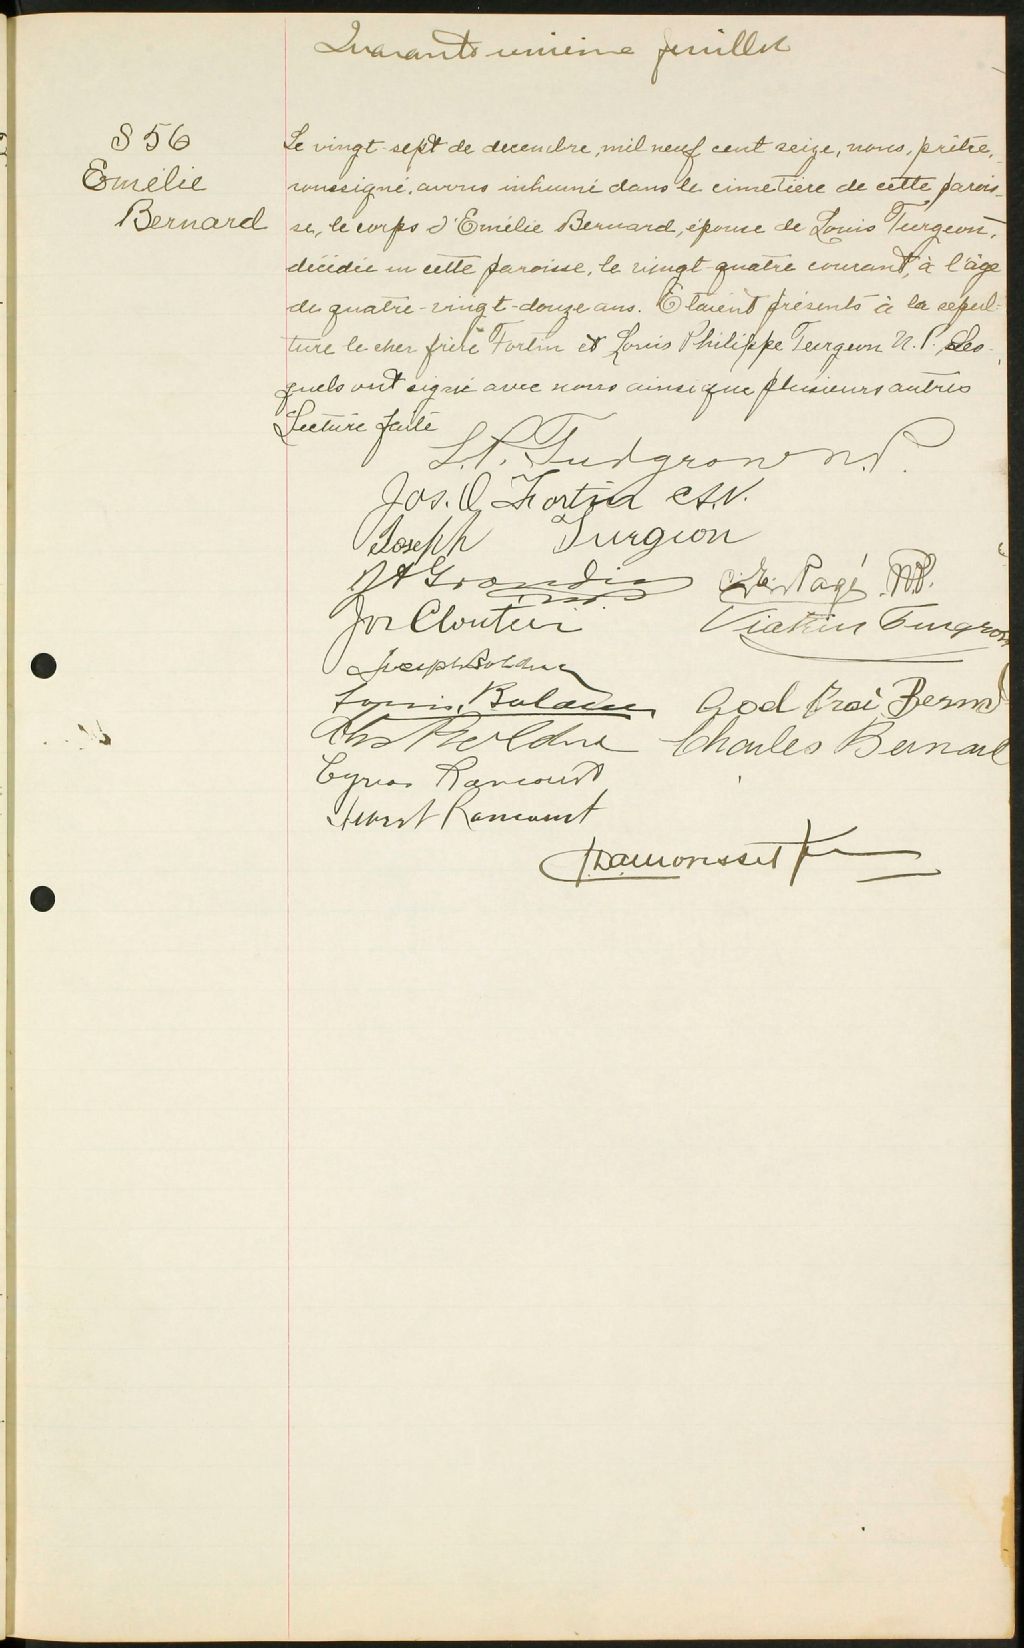 Quarante unieme feuillet
S 56
Emélie
Bernard
Le vingt-sept de decembre, mil neuf cent seize, nous, prêtre,
soussigné, avons inhumé dans le cimetière de cette parois-
se, le corps d'Emélie Bernard, épouse de Louis Turgeon,
décédée en cette paroisse, le vingt-quatre courant, à l'âge
de quatre-vingt-douze ans. Etaient présents à la sépul-
ture le cher frère Fortin et Louis Philippe Turgeon N.P., les-
quels ont signé avec nous ainsi que plusieurs autres
Lecture faite
L.P. Turgeon N.P.
Jos. O. Fortin c.s.v.
Joseph Turgeon
Pagé N.P.
Jos Cloutier
Turgeon
Joseph Bolduc
Louis Bolduc
God Bernard
Bolduc Charles Bernard
Cyrias Rancourt
Rancourt
Ptre